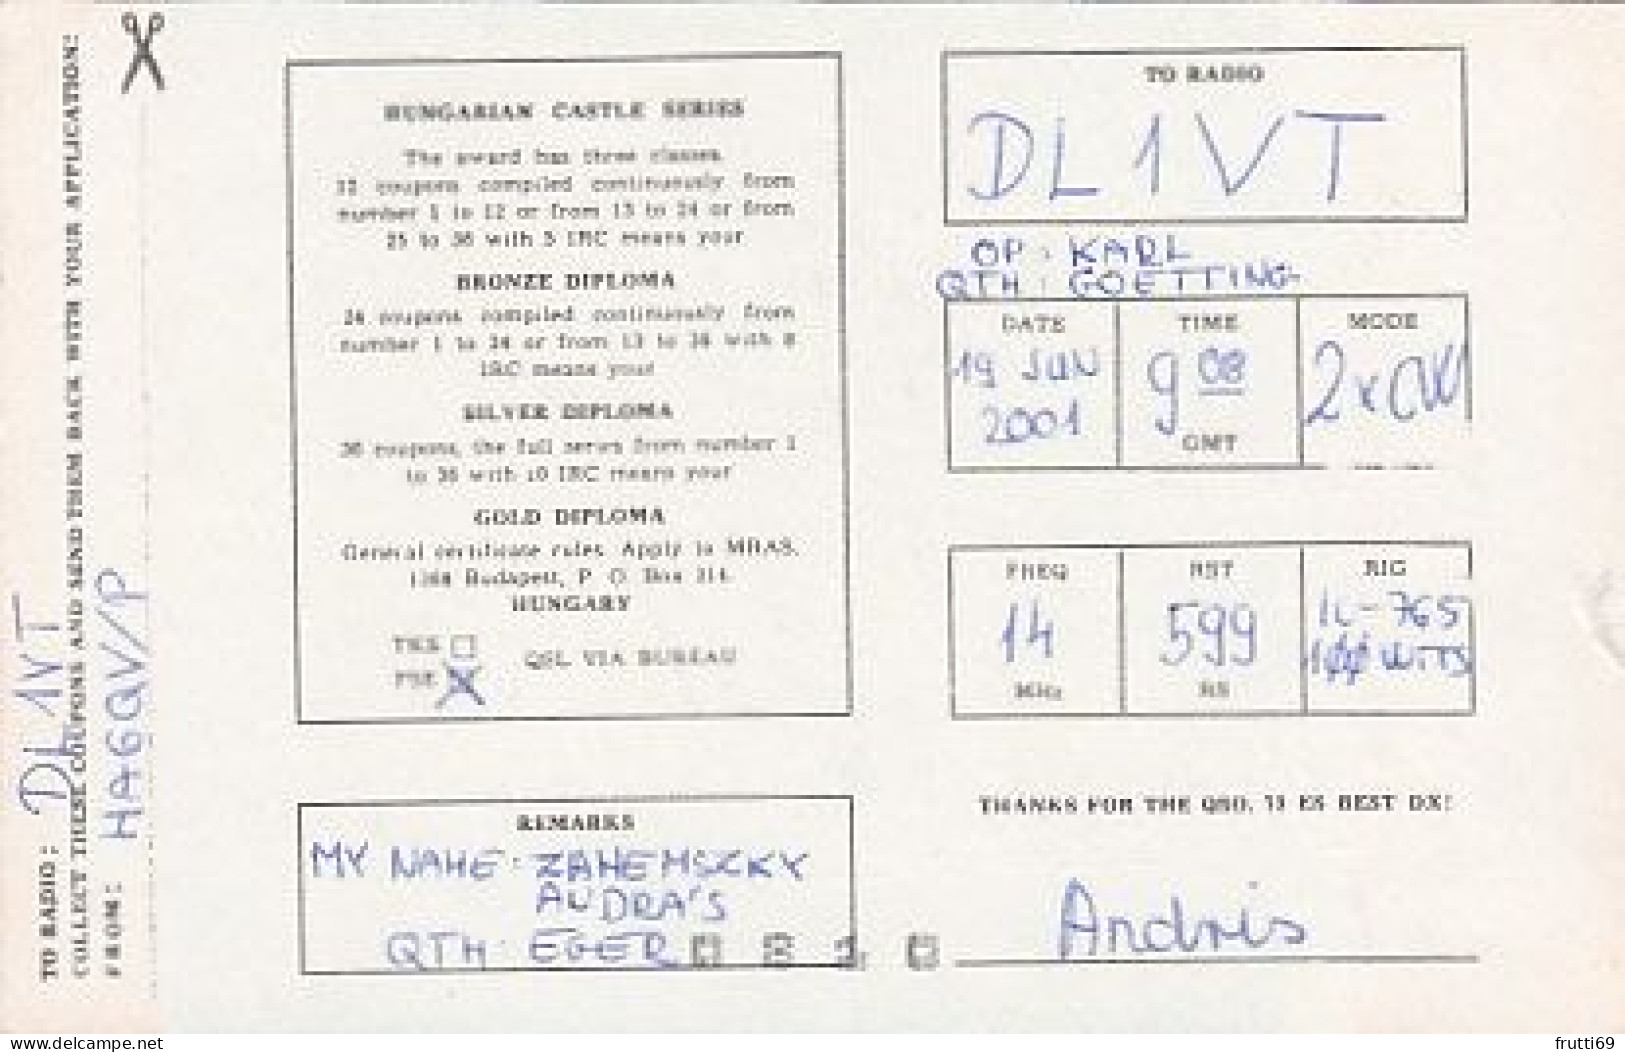 TO RADIO: DL1VT
COLLECT THESE COUPONS AND SEND THEM BACK WITH YOUR APPLICATION!
FROM: HA6QV/P
HUNGARIAN CASTLE SERIES
The award has three classes.
12 coupons compiled continuously from
number 1 to 12 or from 13 to 24 or from
25 to 36 with 5 IRC means your
BRONZE DIPLOMA
24 coupons compiled continuously from
number 1 to 24 or from 13 to 36 with 8
IRC means your
SILVER DIPLOMA
36 coupons, the full series from number 1
to 36 with 10 IRC means your
GOLD DIPLOMA
General certificate rules. Apply to MRAS,
1368 Budapest, P. O. Box 214.
HUNGARY
TKS
PSE X
QSL VIA BUREAU
REMARKS
MY NAME: ZAHEMSZKY
ANDRA'S
QTH: EGER
TO RADIO
DL1VT
OP: KARL
QTH: GOETTING-
DATE
19 JUN
2001
TIME
9 08
GMT
MODE
2xCW
FREQ
14
MHz
RST
599
RS
RIG
IC-765
100 WTTS
THANKS FOR THE QSO, 73 ES BEST DX!
Andris
www.delcampe.net
frutti69